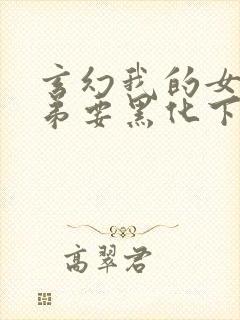 玄幻我的女
弟要黑化下
高翠君